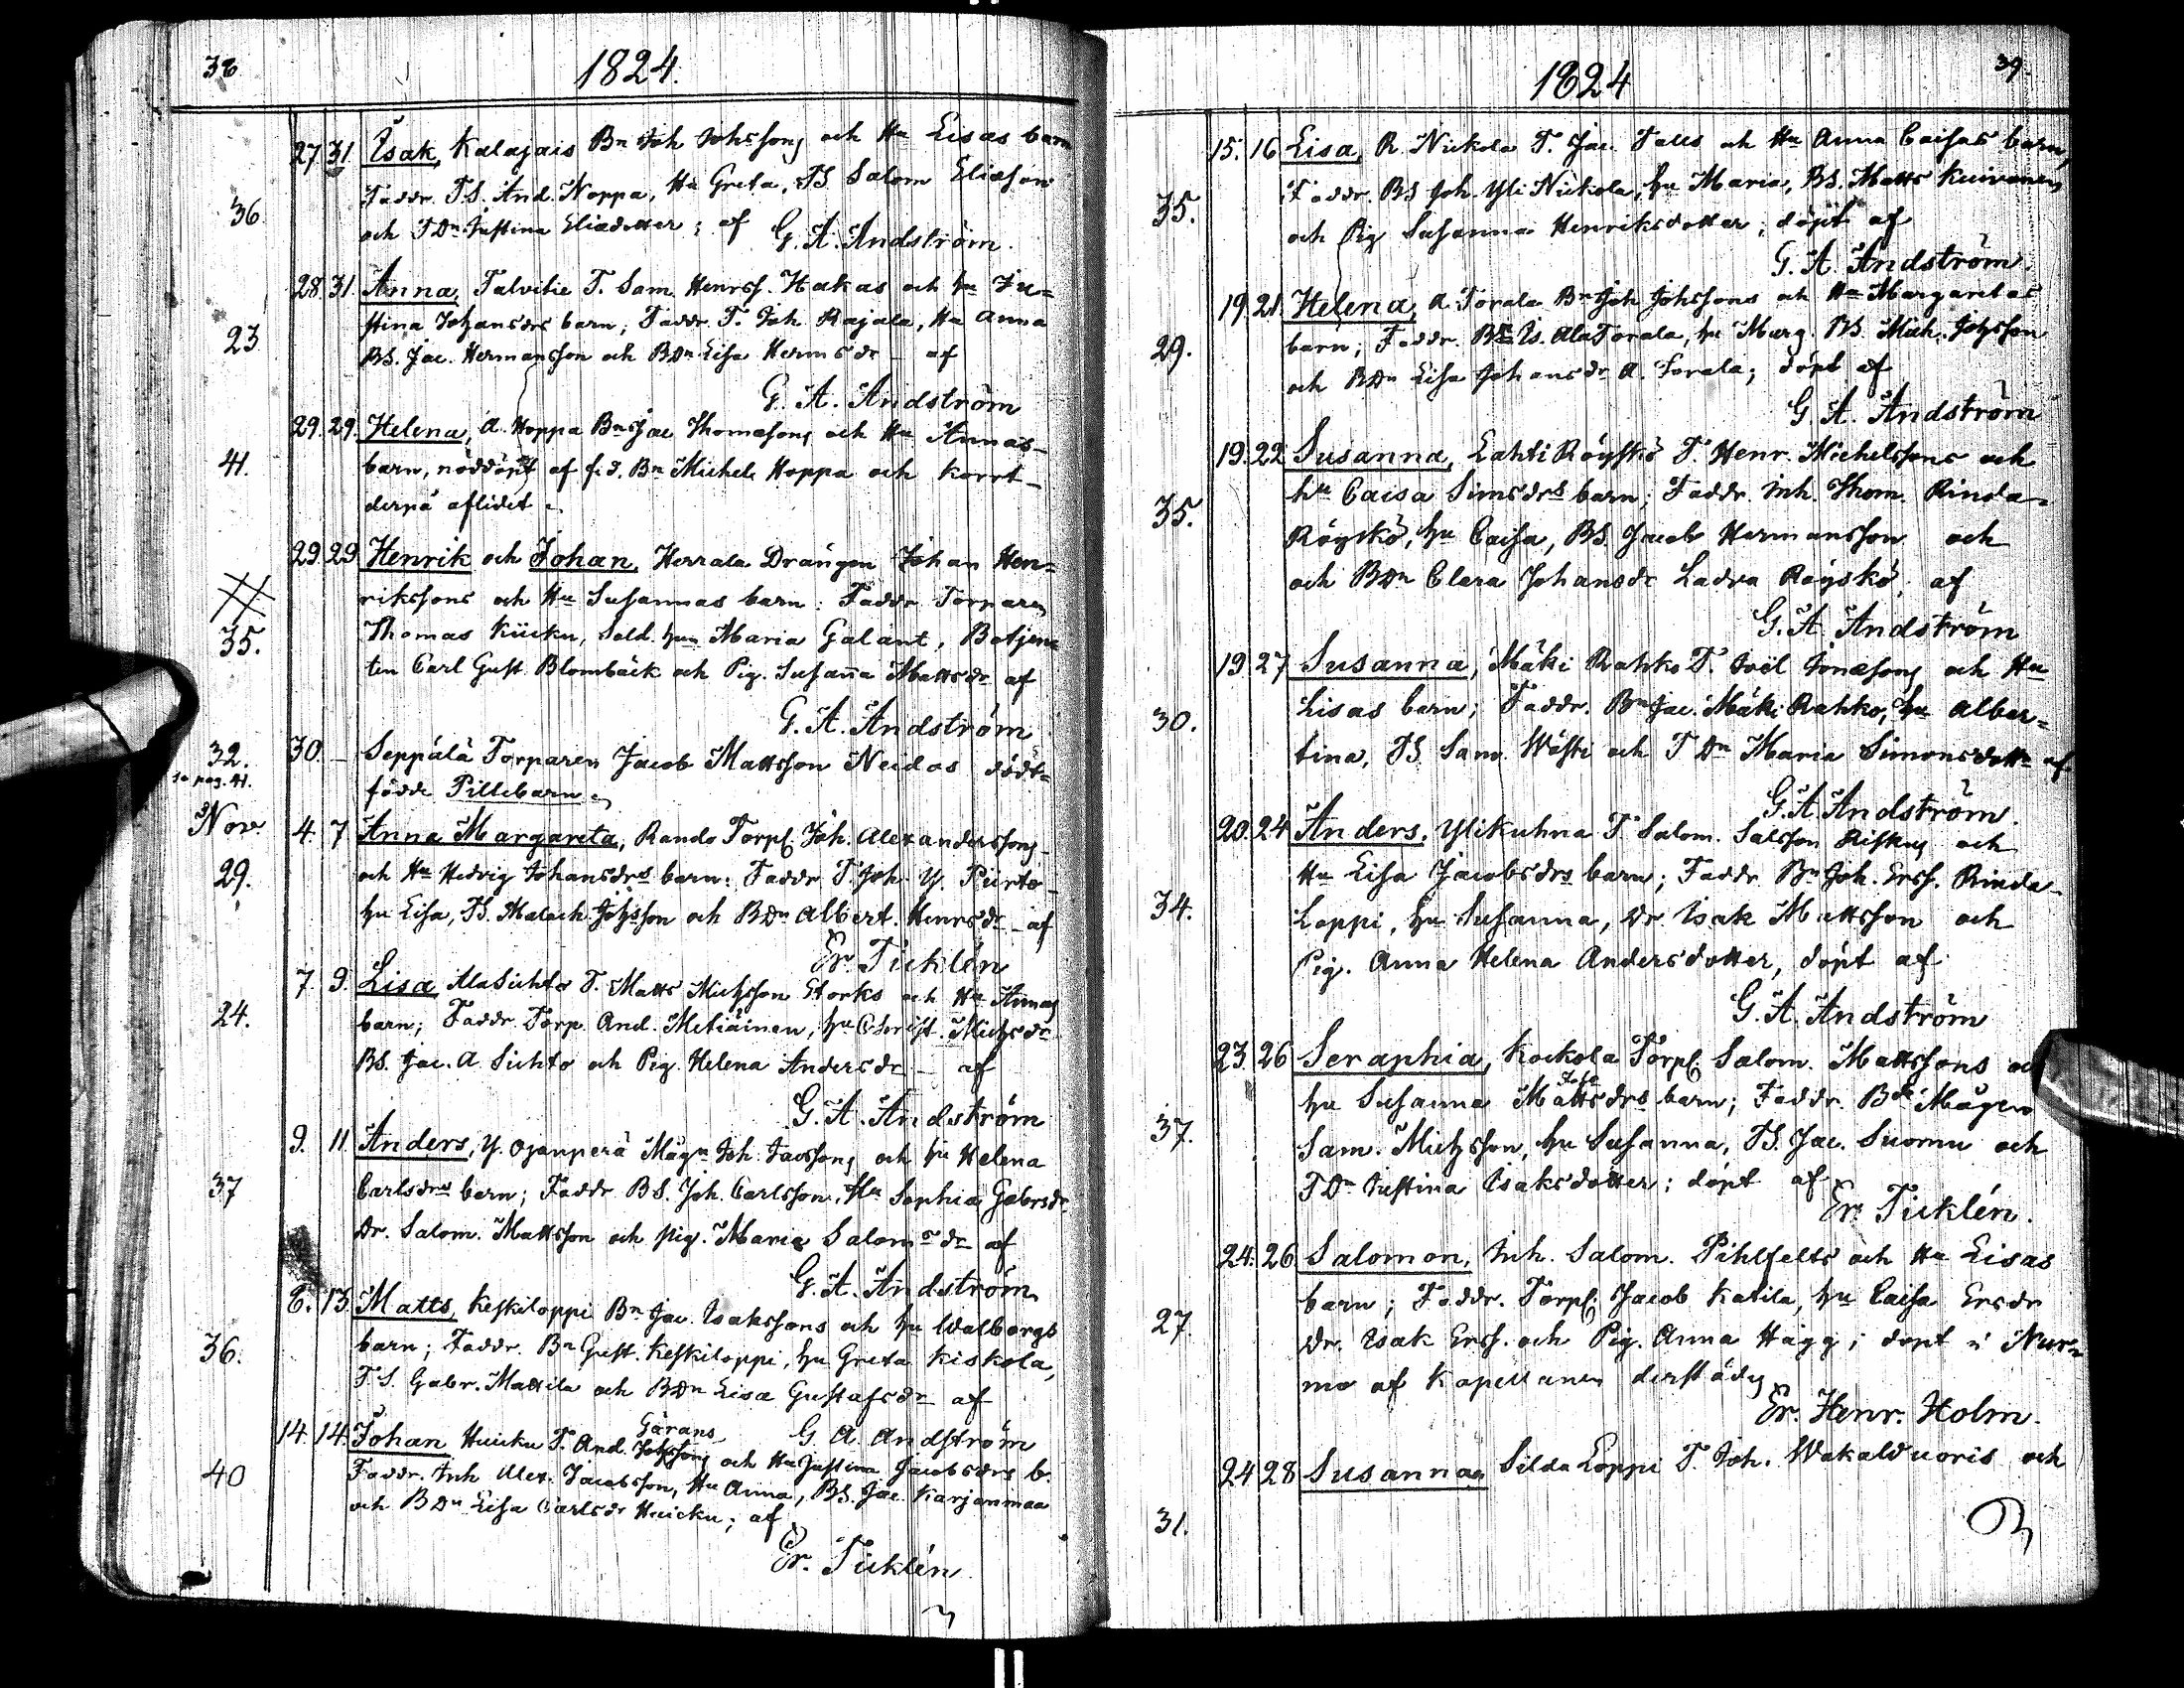 38
1824.
27 31. Isak, Kalajais Bn Joh Johssons och Hu Lisas barn
36. Faddr. T.S. And. Noppa, Hu Greta, TS Salom Eliæson
och TDr Justina Eliædotter; af G. A. Andström.
28. 31. Anna, Talvitie T. Sam. Henrss. Hakas och hu Ju=
23 stina Johansdrs barn; Faddr. T. Joh. Rajala, Hu Anna
BS. Jac. Hermansson och BDr Lisa Hermsdr – af
G. A. Andström
29. 29. Helena, A. Hoppa Bns Jac Thomæsons och Hu Annas
41. barn, nöddöpt af f.d. Bn Michel Hoppa och kort
derpå aflidet.
29 29 Henrik och Johan, Herrala Drängen Johan Hen=
rikssons och Hu Susannas barn: Faddr Torparen
35. Thomas Kücku, Sold. hun Maria Galant, Betjen
ten Carl Gust Blombäck och Pig. Susaña Mattsdr af
G. A. Andström
32. 30. – Seppälä Torparen Jacob Mattsson Neidos död=
se pag. 41. födde Pillebarn.
Nov. 4. 7 Anna Margareta, Rando Torpf. Joh. Alexanderssons
29. och Hu Hedvig Johansdrs barn: Faddr T. Joh. Y. Piirto
hu Lisa, TS. Malach. Johsson och BDr Albert. Henrsdr – af
Er. Ticklén
7. 9. Lisa AlaSichto T. Matts Michsson Storks och Hu Annas
24. barn; Faddr. Torp. And. Metiäinen, hu Christ. Michsdr
BS. Jac. A Sichto och Pig. Helena Andersdr – af
G. A. Andström
9. 11 Anders, Y. Ojanperä Mågn Joh. Jacssons och hu Helena
37 Carlsdrs barn; Faddr. BS. Joh. Carlsson, Hu Sophia Gabrsdr
Dr. Salom. Mattsson och pig. Maria Salomsdr af
G. A. Andström
8. 13 Matts, Keskiloppi Bn Jac. Isakssons och hu Walborgs
36. barn; Faddr. Bn Gust. Keskiloppi, hu Greta Kiskola,
T.S. Gabr. Mattila och BDr Lisa Gustafsdr af
G. A. Andström
Gärans
14. 14. Johan Huicku T. And. Johssons och Hu Justina Jacobsdrs b.
40 Faddr. Inh Alex. Jacobsson, Hu Anna, BS. Jac. Karjanmaa
och BDr Lisa Carlsdr Huicku; af
Er. Ticklén.
39.
1824
15. 16 Lisa, R. Nickola T. Jac. Talus och Hu Anna Caisas barn,
35. Faddr. BS Joh. Yli Nickola, hu Maria, BS. Matts Kuivanen
och Pig Susanna Henriksdotter; döpt af
G. A. Andström.
19. 21 Helena, A. Torala Bn Joh Johssons och Hu Margaretas
29. barn; Faddr. BS Is. AlaTorala, hu Marg. BS. Mich. Johsson
och BDr Lisa Johansdr A. Torala; döpt af
G. A. Andström
19. 22 Susanna, LahtiRöyskö T. Henr. Michelssons och
35. hu Caisa Simsdrs barn; Faddr. Inh. Thom. Rinda=
Röyskö, hu Caisa, BS. Jacob Hermansson och
och BDr Clara Johansdr Ladva Röyskö, af
G. A. Andström
19 27 Susanna, Mäki Rahko T. Joël Jonæsons och Hu
30. Lisas barn; Faddr. Bn Jac. Mäki Rahko, hu Alber=
tina, TS. Sam. Wästi och TDr Maria Simonsdottr af
G. A. Andström.
20. 24 Anders, Ylikuhna T. Salom. Salsson Riskus och
34. Hu Lisa Jacobsdrs barn; Faddr. Bn Joh. Erss. Rinda
Loppi, hu Susanna, Dr. Isak Mattsson och
Pig. Anna Helena Andersdotter, döpt af
G. A. Andström
23. 26 Seraphia, Kockola Torpf. Salom. Mattssons och
hu Susanna Mattsdrs barn; Faddr. Bde Mågen
37. Sam. Michsson, hu Susanna, TS. Jac. Suomu och
TDr Justina Isaksdotter; döpt af
Er. Ticklén.
24. 26 Salomon, Inh. Salom. Pihlfelts och Hu Lisas
27. barn; Faddr. Torpf. Jacob Katila, hu Caisa Ersdr
Dr. Isak Erss. och Pig. Anna Hägg; döpt i Nur=
mo af Kapellanen derstädes
Er. Henr. Holm.
24 28 Susanna Silda Loppi T. Joh. Wakalduoris och
31.